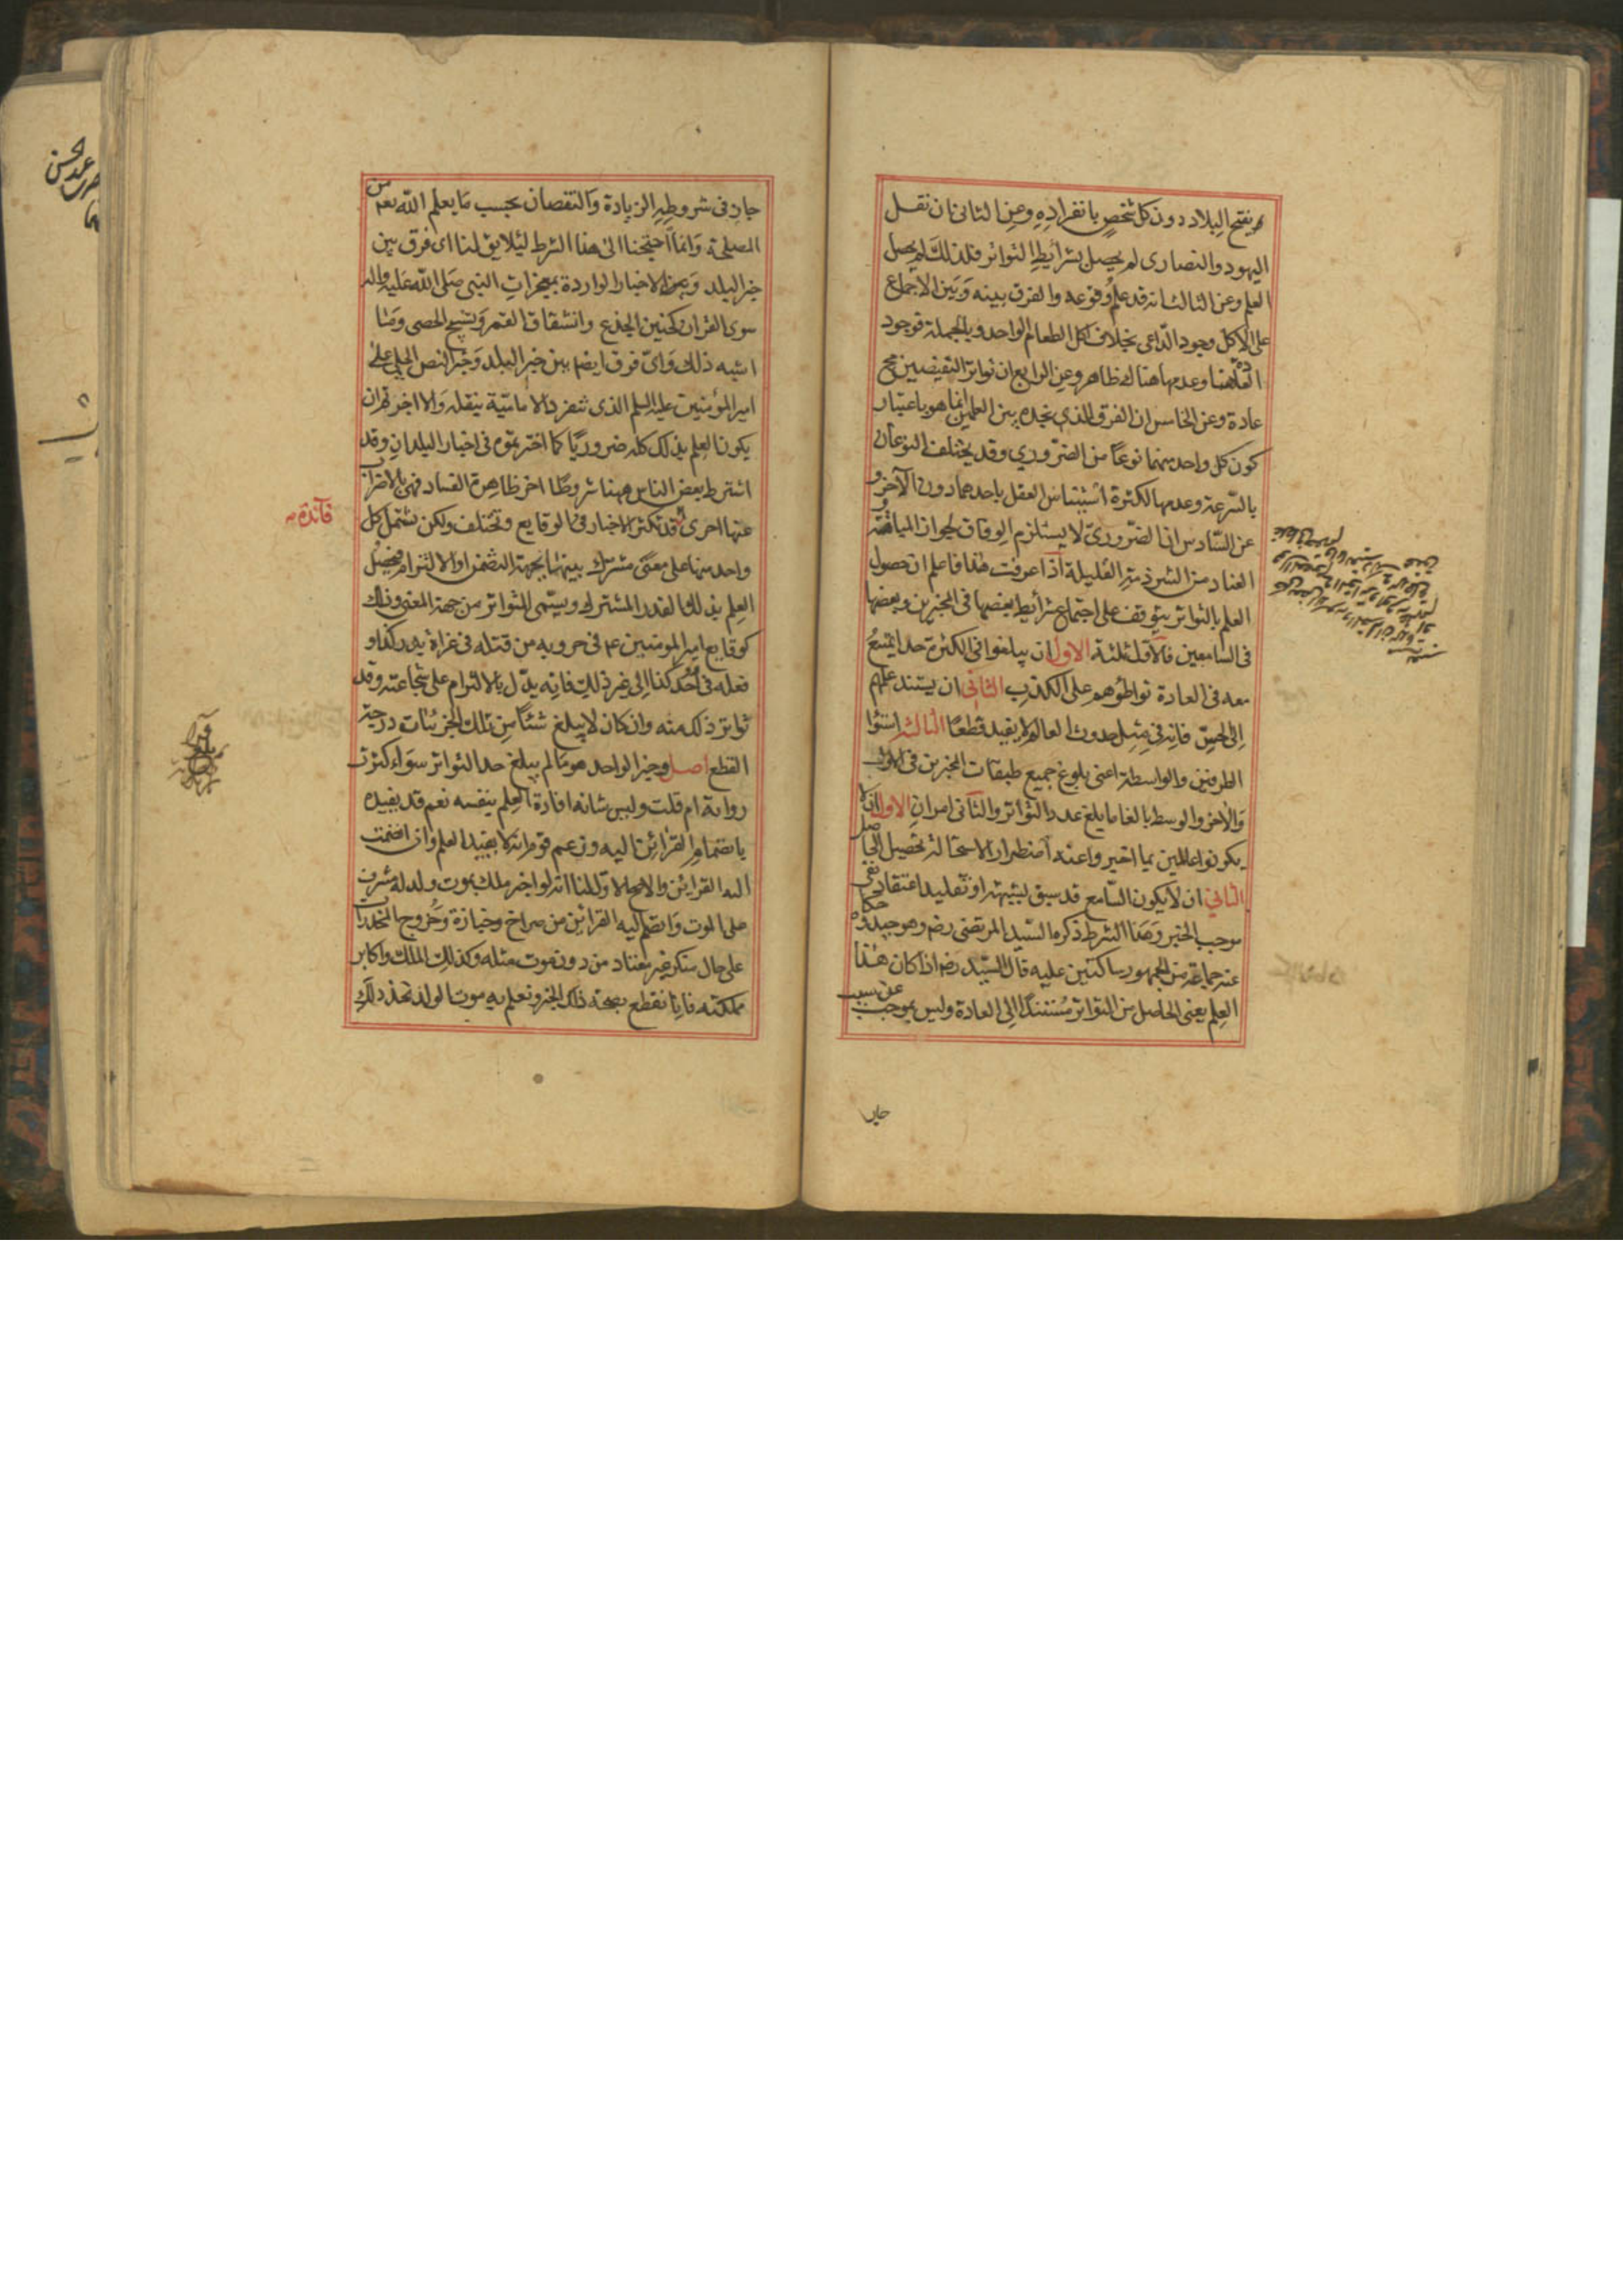 و يفتح البلاد دون كل شخص بانفراده وعن الثاني ان نقل
اليهود والنصارى لم يحصل بشرايط التواتر فلذلك لم يحصل
العلم وعن الثالث انه قد علم وقوعه والفرق بينه وبين الاجماع
على الاكل وجود الداعي بخلاف اكل الطعام الواحد وبالجملة فوجود
العادة هنا وعدمها هناك ظاهر وعن الرابع ان تواتر النقيضين مح
عادة وعن الخامس ان الفرق الذي نجده بين العلمين انما هو باعتبار
كون كل واحد منهما نوعا من الضروري وقد يختلف النوعان
بالسرعة وعدمها لكثرة استيناس العقل باحدهما دون الآخر و
عن السادس ان الضروري لا يستلزم الوفاق لجواز المباهتة و
العناد من الشرذمة القليلة اذا عرفت هذا فاعلم ان حصول
العلم بالتواتر يتوقف على اجتماع شرايط بعضها في المخبرين وبعضها
في السامعين فالاول ثلثة الاول ان يبلغوا في الكثرة حدا يمتنع
معه في العادة تواطؤهم على الكذب الثاني ان يستند علمهم
الى الحس فانه في مثل حدوث العالم لا يفيد قطعا الثالث استواء
الطرفين والواسطة اعني بلوغ جميع طبقات المخبرين في الاول
والاخر والوسط بالغا ما بلغ عدد التواتر والثاني امران الاول ان لا
يكونوا عالمين بما اخبروا عنه اضطرارا لاستحالة تحصيل الحاصل
الثاني ان لا يكون السامع قد سبق بشبهة او تقليد اعتقاد نفي
موجب الخبر وهذا الشرط ذكره السيد المرتضى رضه وهو جيد وحكاه
عنه جماعة من الجمهور ساكتين عليه قال السيد رضه اذا كان هذا
العلم يعني الحاصل من التواتر مستندا الى العادة وليس بموجب عن سبب
جاز
جاز في شروطه الزيادة والنقصان بحسب ما يعلم الله تعم من
المصلحة وانما احتجنا الى هذا الشرط لئلا يق لنا اي فرق بين
خبر البلد وبين الاخبار الواردة بمعجزات النبي صلى الله عليه واله
سوى القران كحنين الجذع وانشقاق القمر وتسبيح الحصى وما
اشبه ذلك واي فرق ايضا بين خبر البلد وخبر النص الجلي على
امير المؤمنين عليه السلم الذي تنفرد الامامية بنقله والا اجزتم ان
يكون العلم بذلك كله ضروريا كما اخترتموه في اخبار البلدان وقد
اشترط بعض الناس ههنا شروطا اخر ظاهرة الفساد فهي بالاضراب
عنها احرى قد تكثر الاخبار في الوقايع وتختلف ولكن يشتمل كل
فائدة
واحد منها على معنى مشترك بينهما بجهة التضمن او الالتزام فيحصل
العلم بذلك القدر المشترك ويسمى المتواتر من جهة المعنى وذلك
كوقايع امير المومنين ع في حروبه من قتله في غزاة بدر كذا و
فعله في احد كذا الى غير ذلك فانه يدل بالالتزام على شجاعته وقد
تواتر ذلك منه وان كان لا يبلغ شئا من تلك الجزئيات درجة
القطع اصل وخبر الواحد هو ما لم يبلغ حد التواتر سواء كثرت
رواته ام قلت وليس شانه افادة العلم بنفسه نعم قد يفيده
بانضمام القرائن اليه وزعم قوم انه لا يفيد العلم وان انضمت
اليه القرائن والاصح الاول لنا انه لو اخبر ملك بموت ولد له مشرف
على الموت وانضم اليه القرائن من صراخ وجنازة وخروج المخدرات
على حال منكر غير معتاد من دون موت مثله وكذلك الملك واكابر
مملكته فانا نقطع بصحة ذلك الخبر ونعلم به موت الولد نجد ذلك